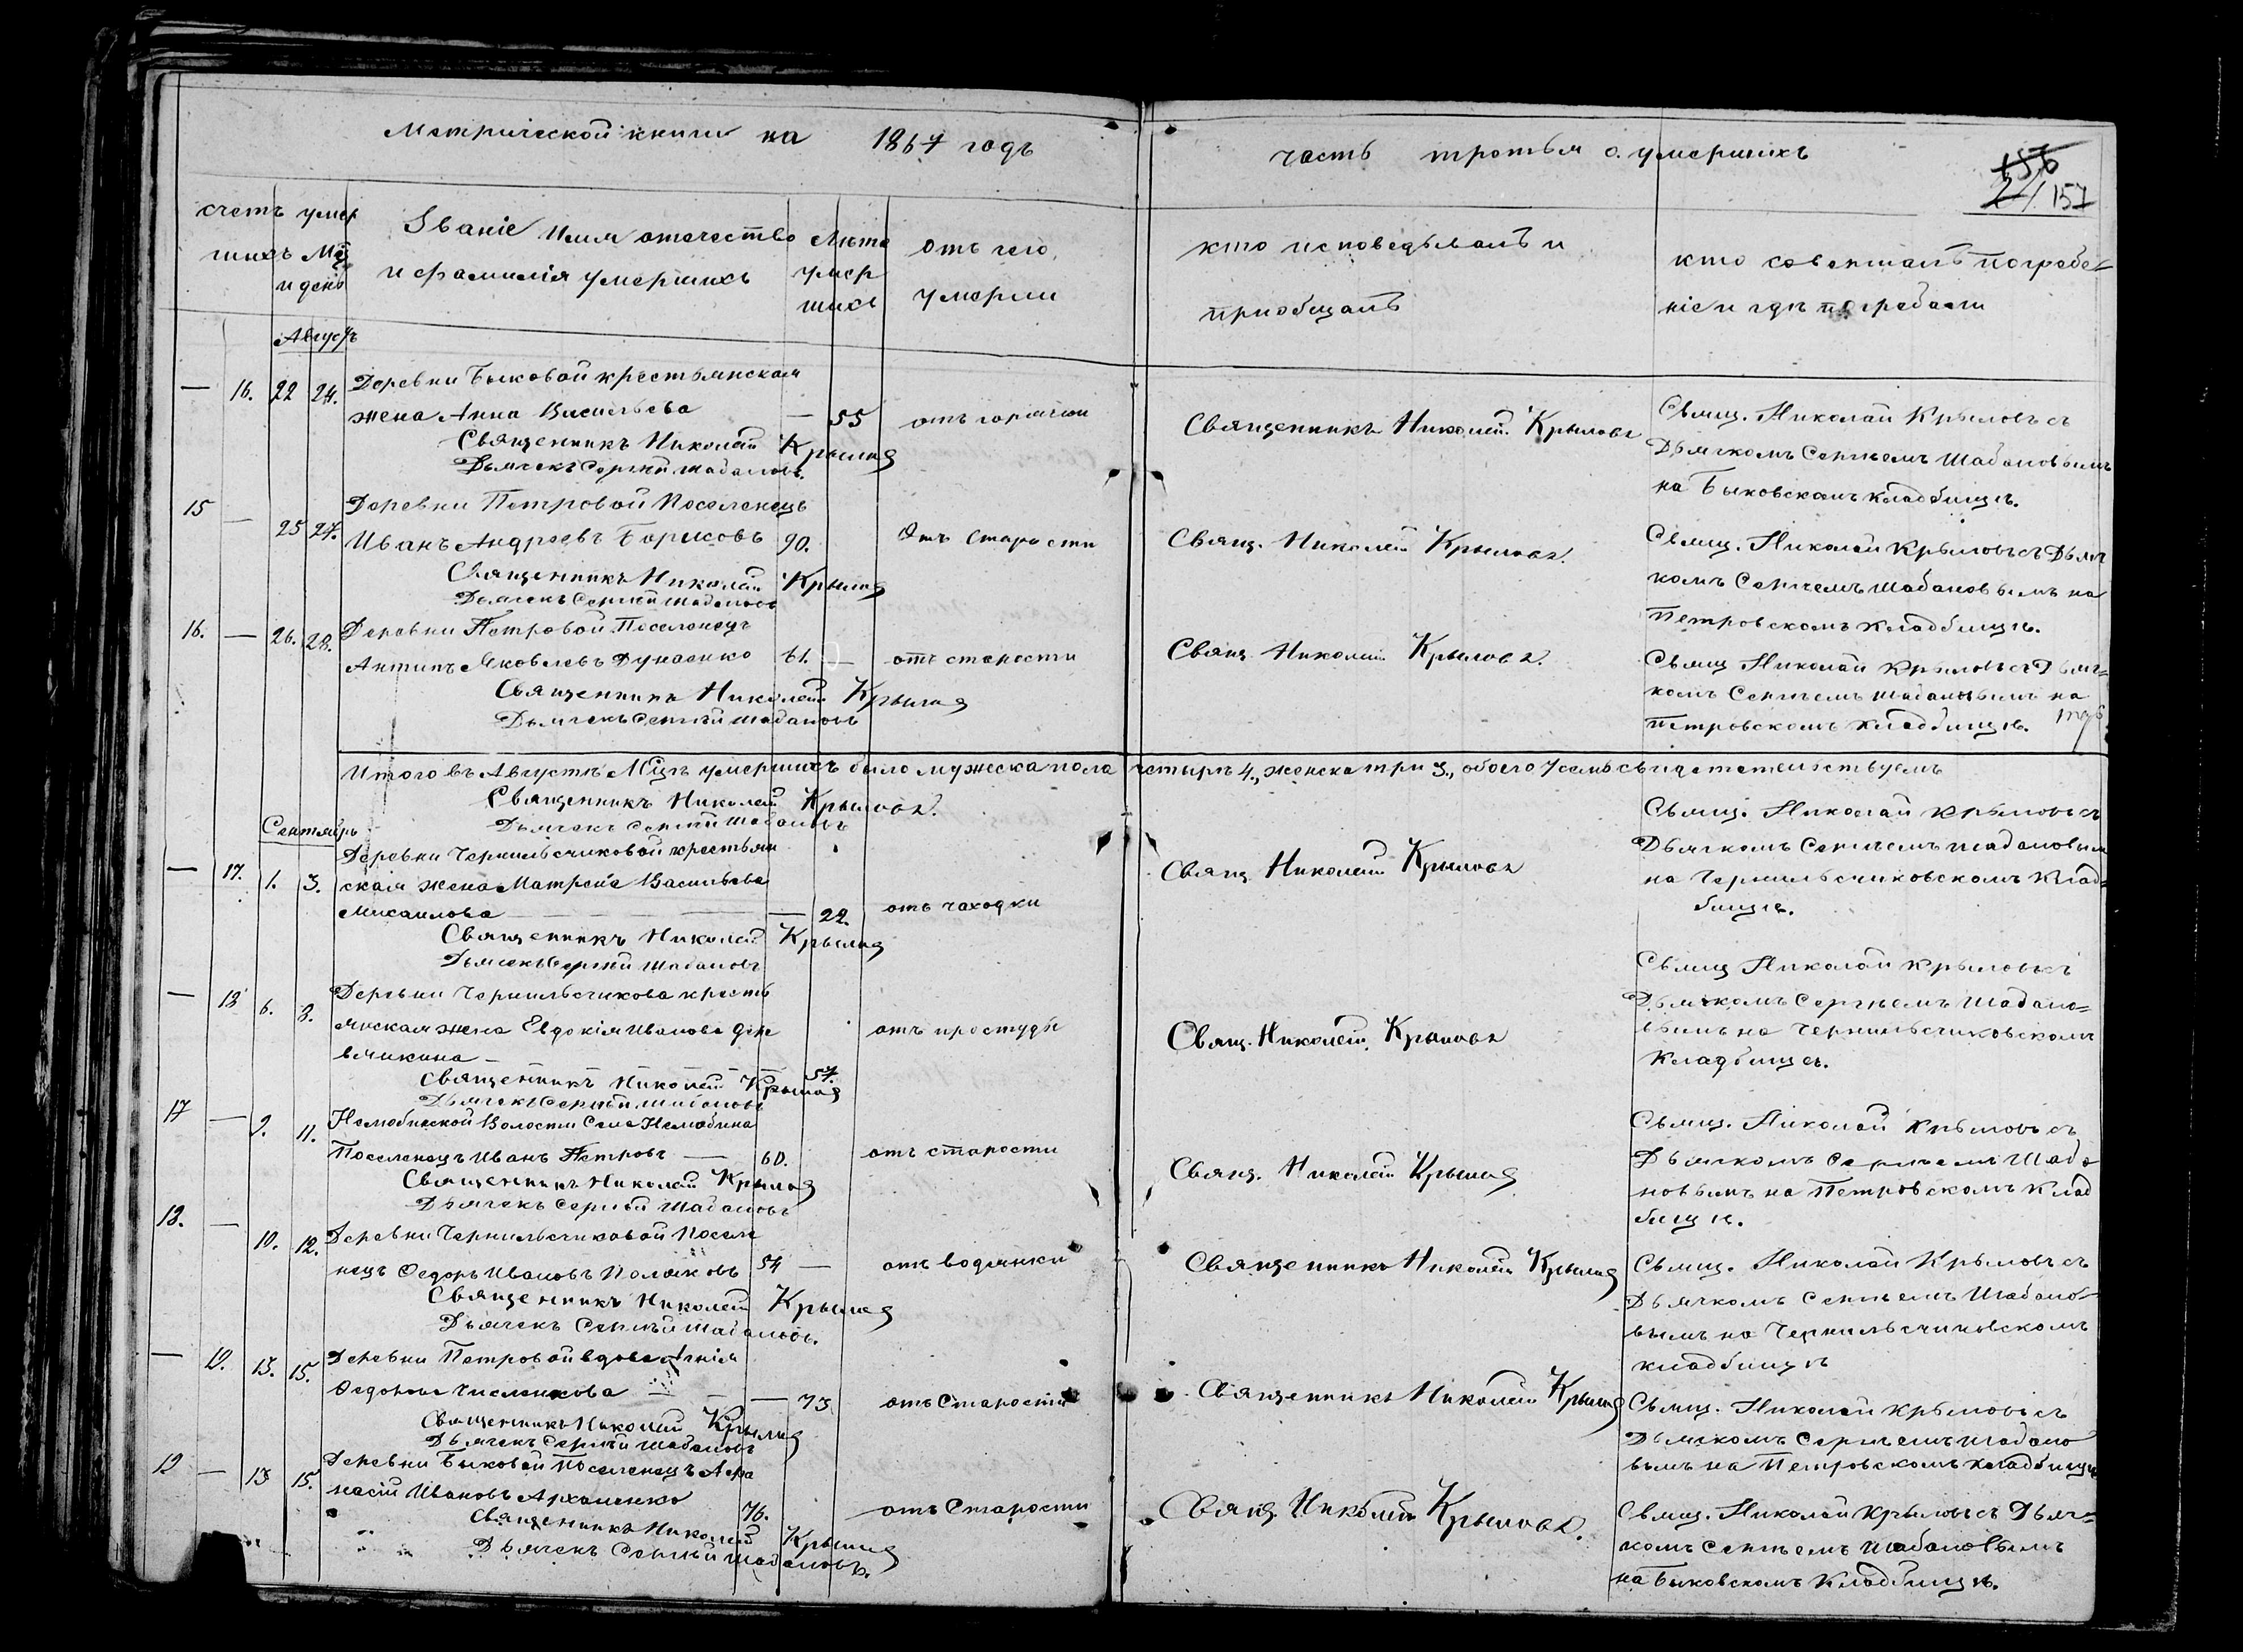 Метрической книги на 1867 годъ
часть третья о умершихъ
156
21/157
счетъ умер
шихъ Мцъ
и день
Званіе имя отечество
и фамилія умершихъ
Лета
умер
шихъ
отъ чего
умерли
кто исповедывалъ и
приобщалъ
кто совершалъ погребе-
ніе и где погребены
Августъ
— 16. 22 24. Деревни Быковой крестьянская
жена Анна Васильева — 55 отъ горячки
Священникъ Николай Крыловъ
Дьячекъ Сергій Шабановъ.
Священникъ Николай Крыловъ
Свящ. Николай Крыловъ съ
Дьячкомъ Сергеемъ Шабановымъ
на Быковскомъ кладбище.
15 — 25 27. Деревни Петровой Поселенецъ
Иванъ Андреевъ Борисовъ 90. Отъ старости
Священникъ Николай Крыловъ
Дьячекъ Сергій Шабановъ
Свящ. Николай Крыловъ.
Свящ. Николай Крыловъ съ Дьяч
комъ Сергеемъ Шабановымъ на
Петровскомъ кладбище.
16. — 26. 28. Деревни Петровой Поселенецъ
Антипъ Яковлевъ 61. — отъ старости
Священникъ Николай Крыловъ
Дьячекъ Сергій Шабановъ
Свящ Николай Крыловъ.
Свящ Николай Крыловъ съ Дьяч-
комъ Сергеемъ Шабановымъ на
Петровскомъ кладбище.
Итого въ Августе Мцѣ умершихъ было мужеска пола четыре 4., женска три 3., обоего 7 семь свидетельствуемъ
Священникъ Николай Крыловъ.
Дьячекъ Сергій Шабановъ
Сентябрь
— 17. 1. 3. Деревни Чернильсчиковой крестьян
ская жена Матрена Васильева
Михаилова — 22. отъ чаходки
Священникъ Николай Крыловъ
Дьячекъ Сергій Шабановъ
Свящ Николай Крыловъ
Свящ. Николай Крыловъ съ
Дьячкомъ Сергеемъ Шабановым
на Чернильсчиковскомъ Клад-
бище.
— 18 6. 8. Деревни Чернильсчикова кресть
янская жена Евдокія Иванова
— 57. отъ простуды
Священникъ Николай Крыловъ
Дьячекъ Сергій Шабановъ
Свящ. Николай Крыловъ
Свящ Николай Крыловъ съ
Дьячкомъ Сергеемъ Шабано-
вымъ на Чернильсчиковскомъ
Кладбище.
17 — 9. 11. Нелюбинской Волости Села Нелюбина
Поселенецъ Иванъ Петровъ — 60. отъ старости
Священникъ Николай Крыловъ
Дьячекъ Сергій Шабановъ
Свящ. Николай Крыловъ
Свящ. Николай Крыловъ съ
Дьячкомъ Сергеемъ Шаба
новымъ на Петровскомъ Клад
бище.
18. — 10. 12. Деревни Чернильсчиковой Поселе
нецъ Федоръ Ивановъ Поляковъ 54 — отъ водянки
Священникъ Николай Крыловъ
Дьячекъ Сергій Шабановъ.
Священникъ Николай Крыловъ
Свящ. Николай Крыловъ съ
Дьячкомъ Сергеемъ Шабано-
вымъ на Чернильсчиковскомъ
кладбище
— 19. 13. 15. Деревни Петровой вдова Агнія
Федорова Численкова — 73 отъ Старости
Священникъ Николай Крыловъ
Дьячекъ Сергій Шабановъ
Священникъ Николай Крыловъ
Свящ. Николай Крыловъ съ
Дьячкомъ Сергеемъ Шабано
вымъ на Петровскомъ кладбище
19 — 13 15. Деревни Быковой Поселенецъ Афа
насій Ивановъ Архаменко 76. отъ Старости
Священникъ Николай Крыловъ
Дьячекъ Сергій Шабановъ.
Свящ. Николай Крыловъ.
Свящ. Николай Крыловъ съ Дьяч-
комъ Сергеемъ Шабановымъ
на Быковскомъ Кладбище.